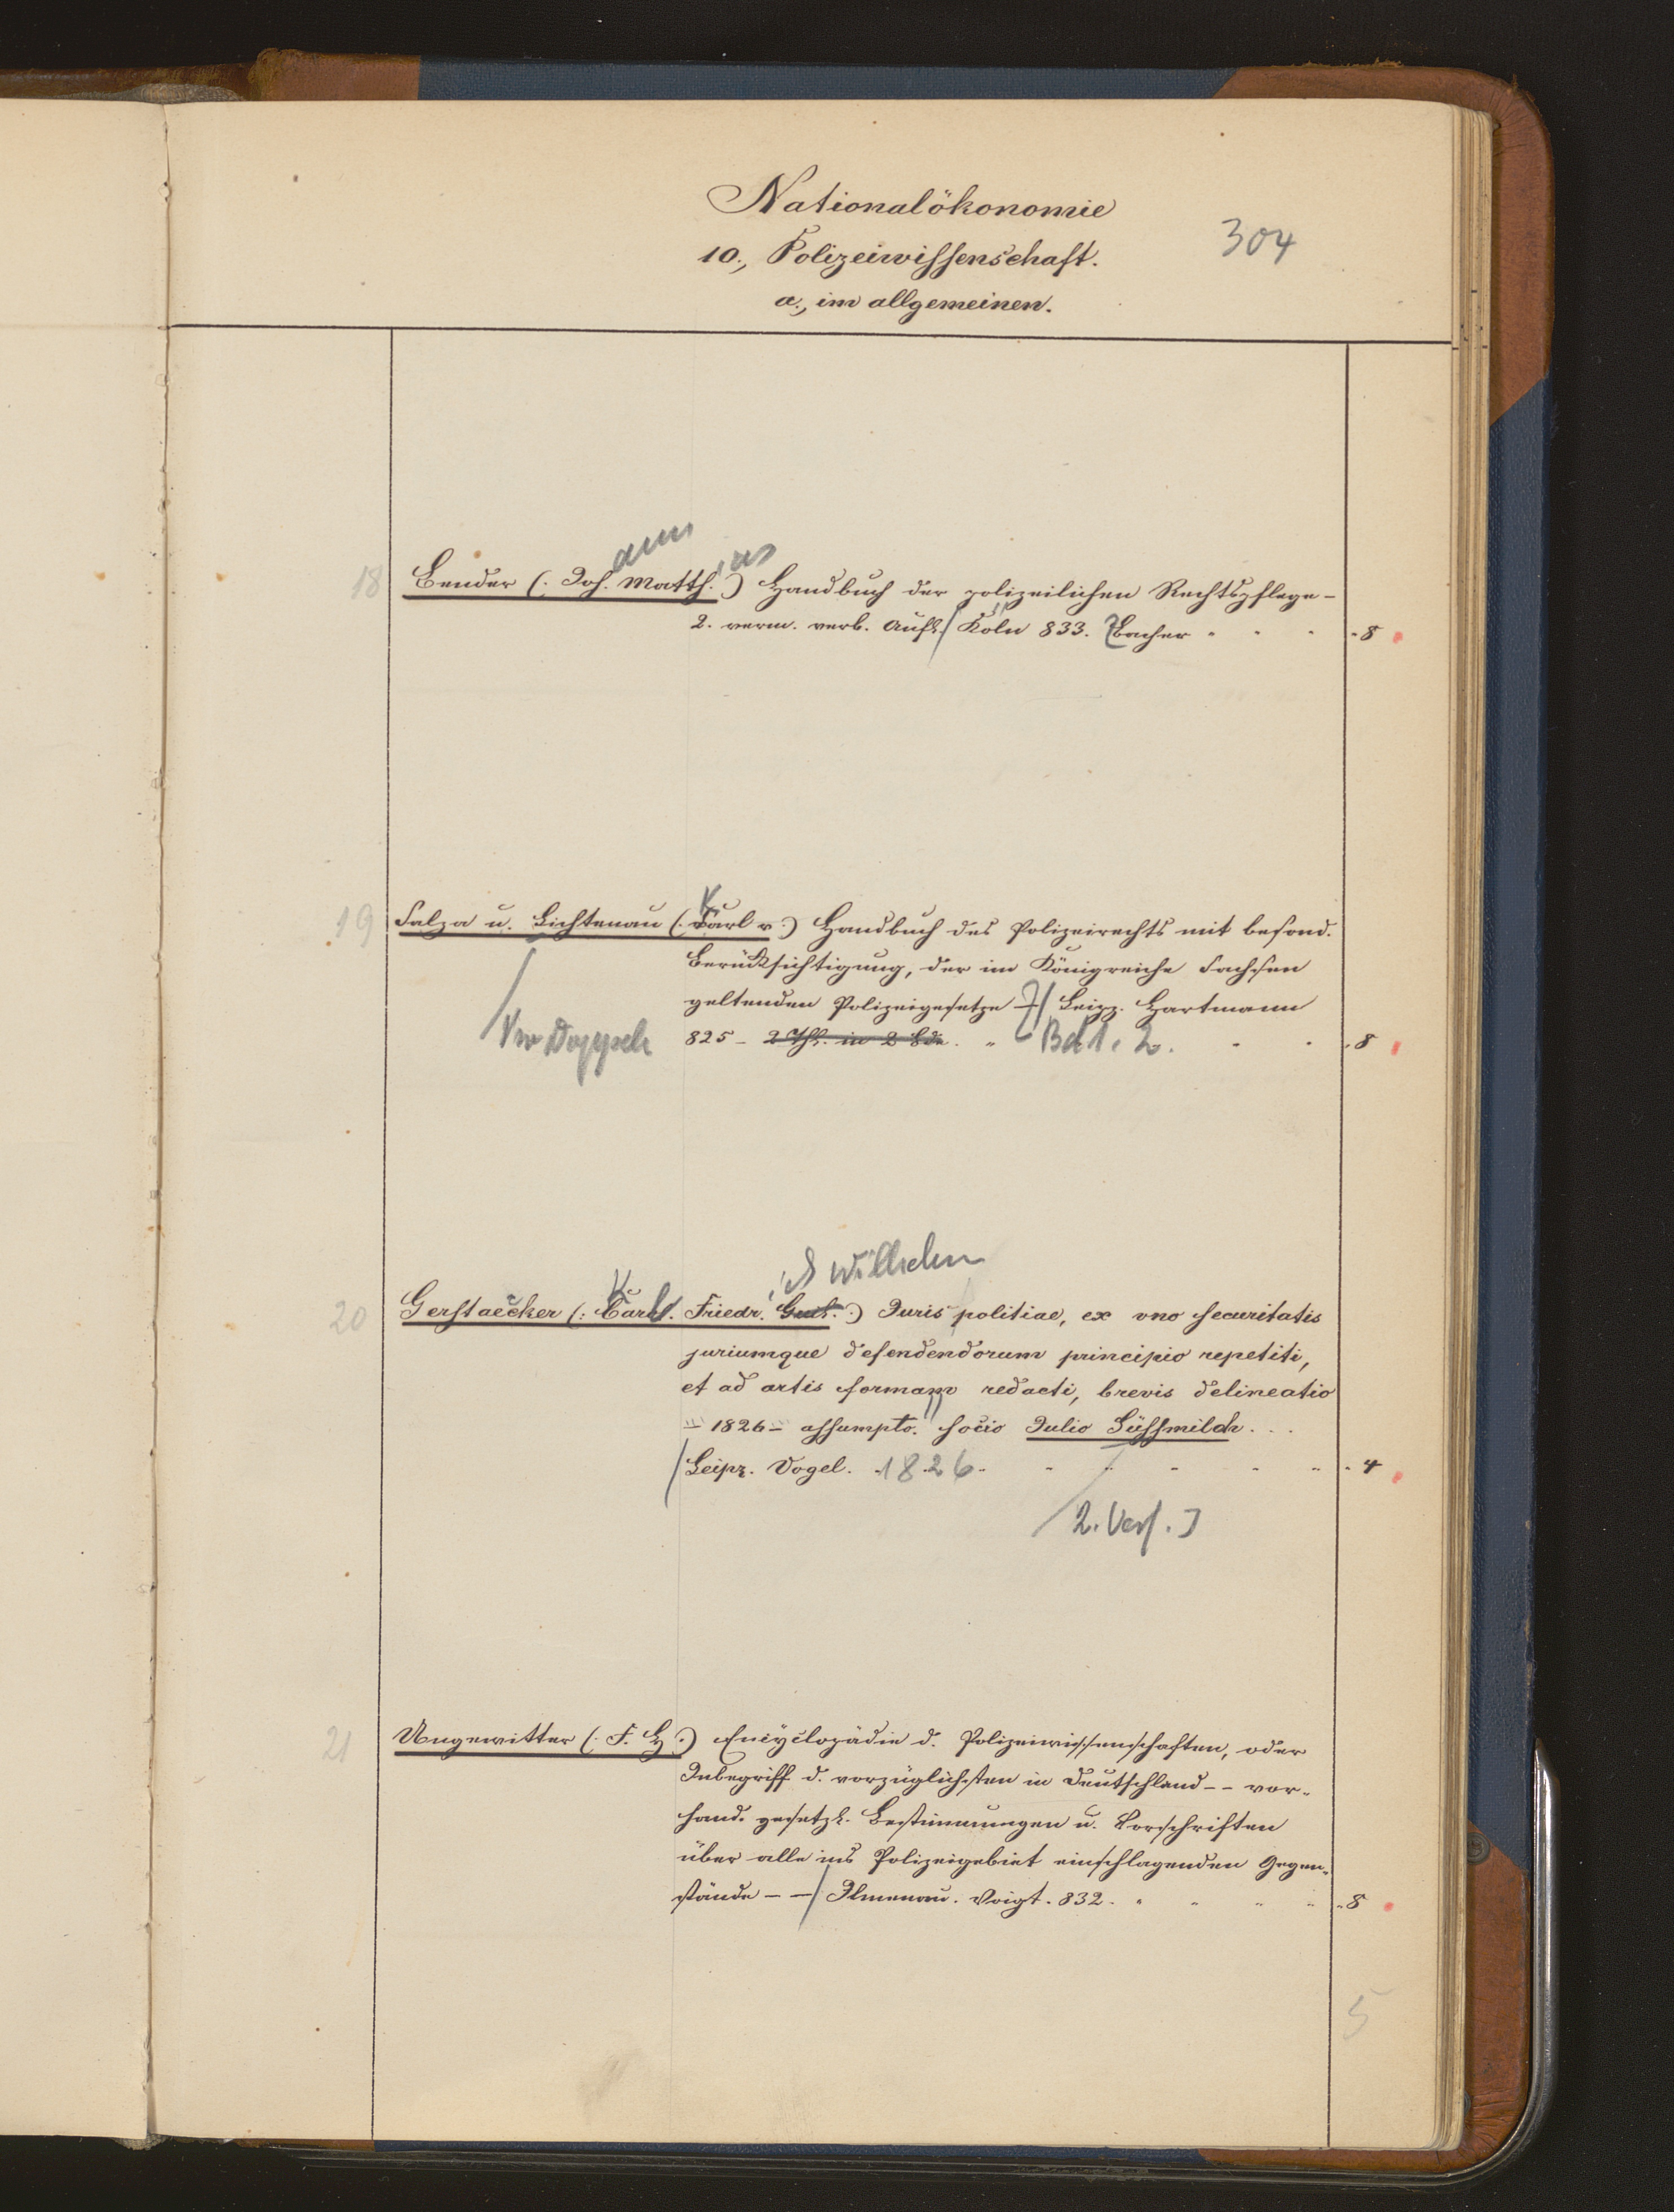 Nationalökonomie
304
10., Polizeiwissenschaft.
a., im allgemeinen.
ann ias
18 Bender (: Joh. Matth. :) Handbuch der polizeilichen Rechtspflege –
2. verm. verb. Aufl. / Köln 833. Bacher " " " " 8
K
19 Salza u. Lichtenau (: Carl v. :) Handbuch des Polizeirechts mit besond.
Berücksichtigung, der im Königreiche Sachsen
geltenden Polizeigesetze – / Leipz. Hartmann
Vw Doppelt 825 – 2 Thl. in 2 Bde. " Bd 1. 2. " " 8
ich Wilhelm
K
20 Gerstaecker (: Carl. Friedr. Guil. :) Juris politiae, ex uno securitatis
juriumque defendendorum principio repetiti,
et ad artis formam redacti, brevis delineatio
– 1826 – assumpto. socio Julio Süssmilch . . .
/ Leipz. Vogel. 1826. " " " " " " 4
2. Verf. ]
21 Ungewitter (: F. H. :) Encyclopädie d. Polizeiwissenschaften, oder
Inbegriff d. vorzüglichsten in Deutschland – – vor-
hand. gesetzl. Bestimmungen u. Vorschriften
über alle ins Polizeigebiet einschlagenden Gegen-
stände – – / Ilmenau. Voigt. 832. " " " " " 8
5